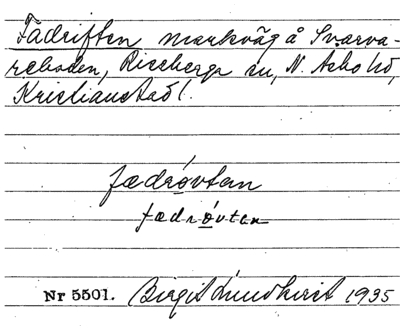 Fädriften markväg å Svarva-
reboden, Riseberga sn, N. Åsbo hd,
Kristianstads l.
fædrovtan
fædrovtan
Nr 5501. Birgit Lundkvist 1935